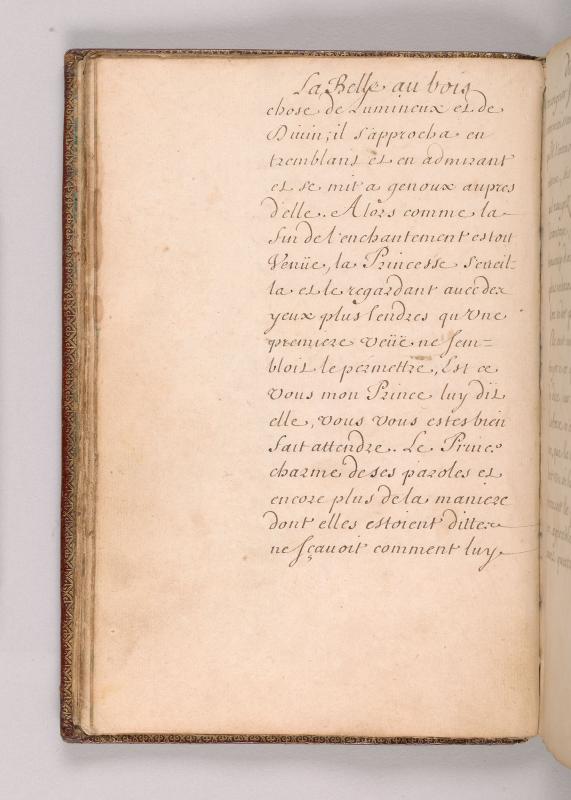 La Belle au bois
chose de Lumineux et de
Divin; il s'approcha en
tremblant et en admirant
et se mit a genoux aupres
d'elle. Alors comme la
fin de l'enchantement estoit
Venüe, la Princesse s'eveil-
la et le regardant avec des
yeux plus tendres qu'vne
premiere veüe ne sem=
bloit le permettre, Est ce
vous mon Prince luy dit
elle, vous vous estes bien
fait attendre. Le Prince
charmé de ses paroles et
encore plus de la maniere
dont elles estoient dittes
ne sçavoit comment luy